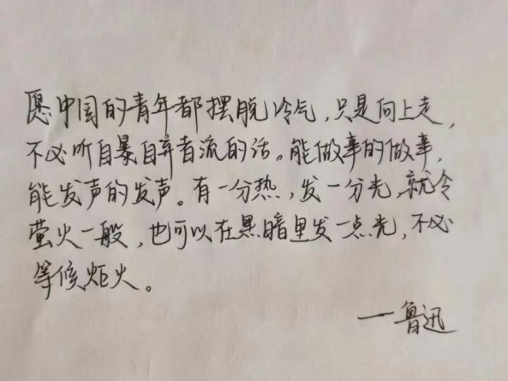 愿中国的青年都摆脱冷气，只是向上走，
不必听自暴自弃者流的话。能做事的做事，
能发声的发声。有一分热，发一分光，就令
萤火一般，也可以在黑暗里发一点光，不必
等候炬火。
—鲁迅